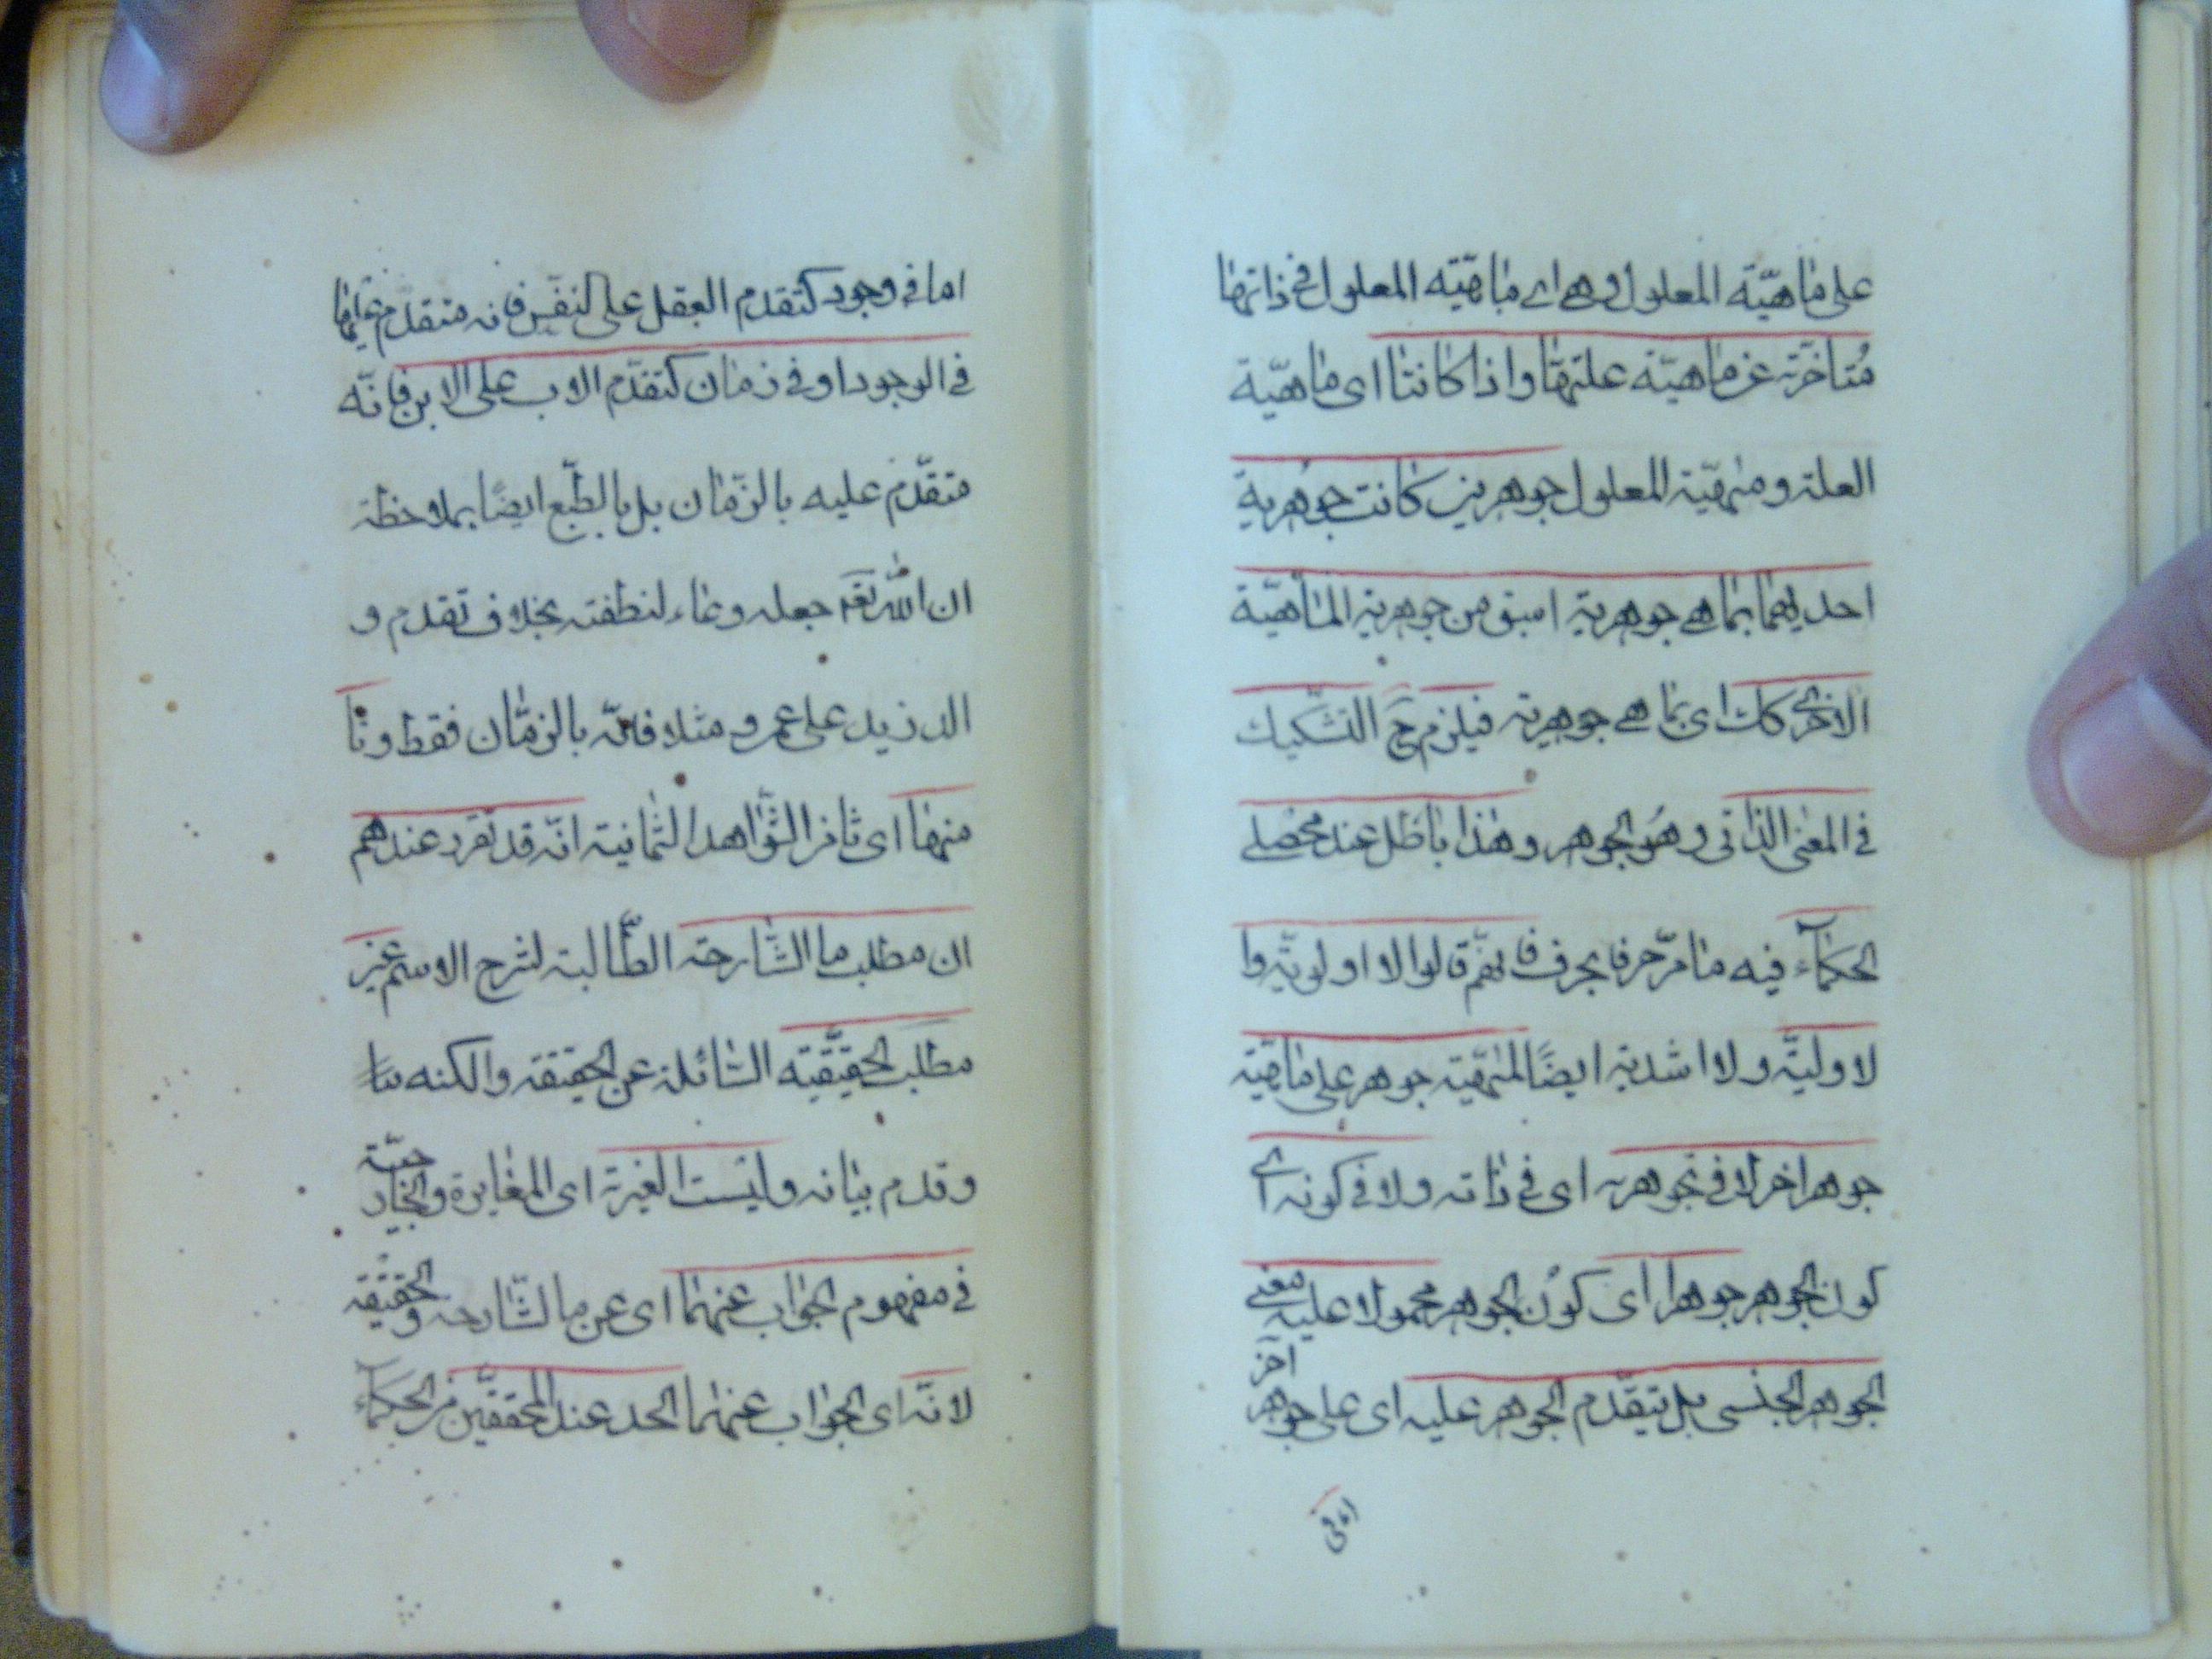 على ماهيّة المعلول وهى اى ماهيّته المعلول فى ذاتها
مُتاخرّة عن ماهيّة علتها واذا كانتا اى ماهيّة
العلة ومهيّة المعلول جوهرين كانت جوهرية
احديهما بما هى جوهرية اسبق من جوهرية الماهيّة
الاخرى كك اى بما هى جوهرية فيلزم ح التشكيك
فى المعنى الذاتى وهو الجوهر وهذا باطل عند محصلى
الحكماء فيه ما مرّ حرفا بحرف فانهم قالوا لا اولويّة ولا
لا وليّة ولا اشدية ايضًا لمهيّة جوهر على ماهيّة
جوهر اخر لا فى تجوهره اى فى ذاته ولا فى كونه اى
كون الجوهر جوهرا اى كون الجوهر محمولا عليه معنى
الجوهر الجنسى بل يتقدّم الجوهر عليه اى على جوهر آخر
اما فى
اما فى وجود كتقدم العقل على النفس فانه متقدّم عليها
فى الوجود او فى زمان كتقدّم الاب على الابن فانّه
متقدّم عليه بالزمان بل بالطّبع ايضًا بملاحظة
ان الله تعه جعله وعاء لنطفته بخلاف تقدم و
الد زيد على عمرو مثلا فانّه بالزمّان فقط وثا
منها اى ثامن الشّواهد الثمانية انّه قد تقرر عندهم
ان مطلب ما الشّارحة الطّالبة لشرح الاسم غير
مطلب الحقيقيّة السّائلة عن الحقيقة والكنه
وقدم بيانه وليست الغيرية اى المغايرة والخارجيّة
فى مفهوم الجواب عنهما اى عن ما الشّارحة والحقيقة
لانّه اى الجواب عنهما الحد عند المحققّين من الحكماء